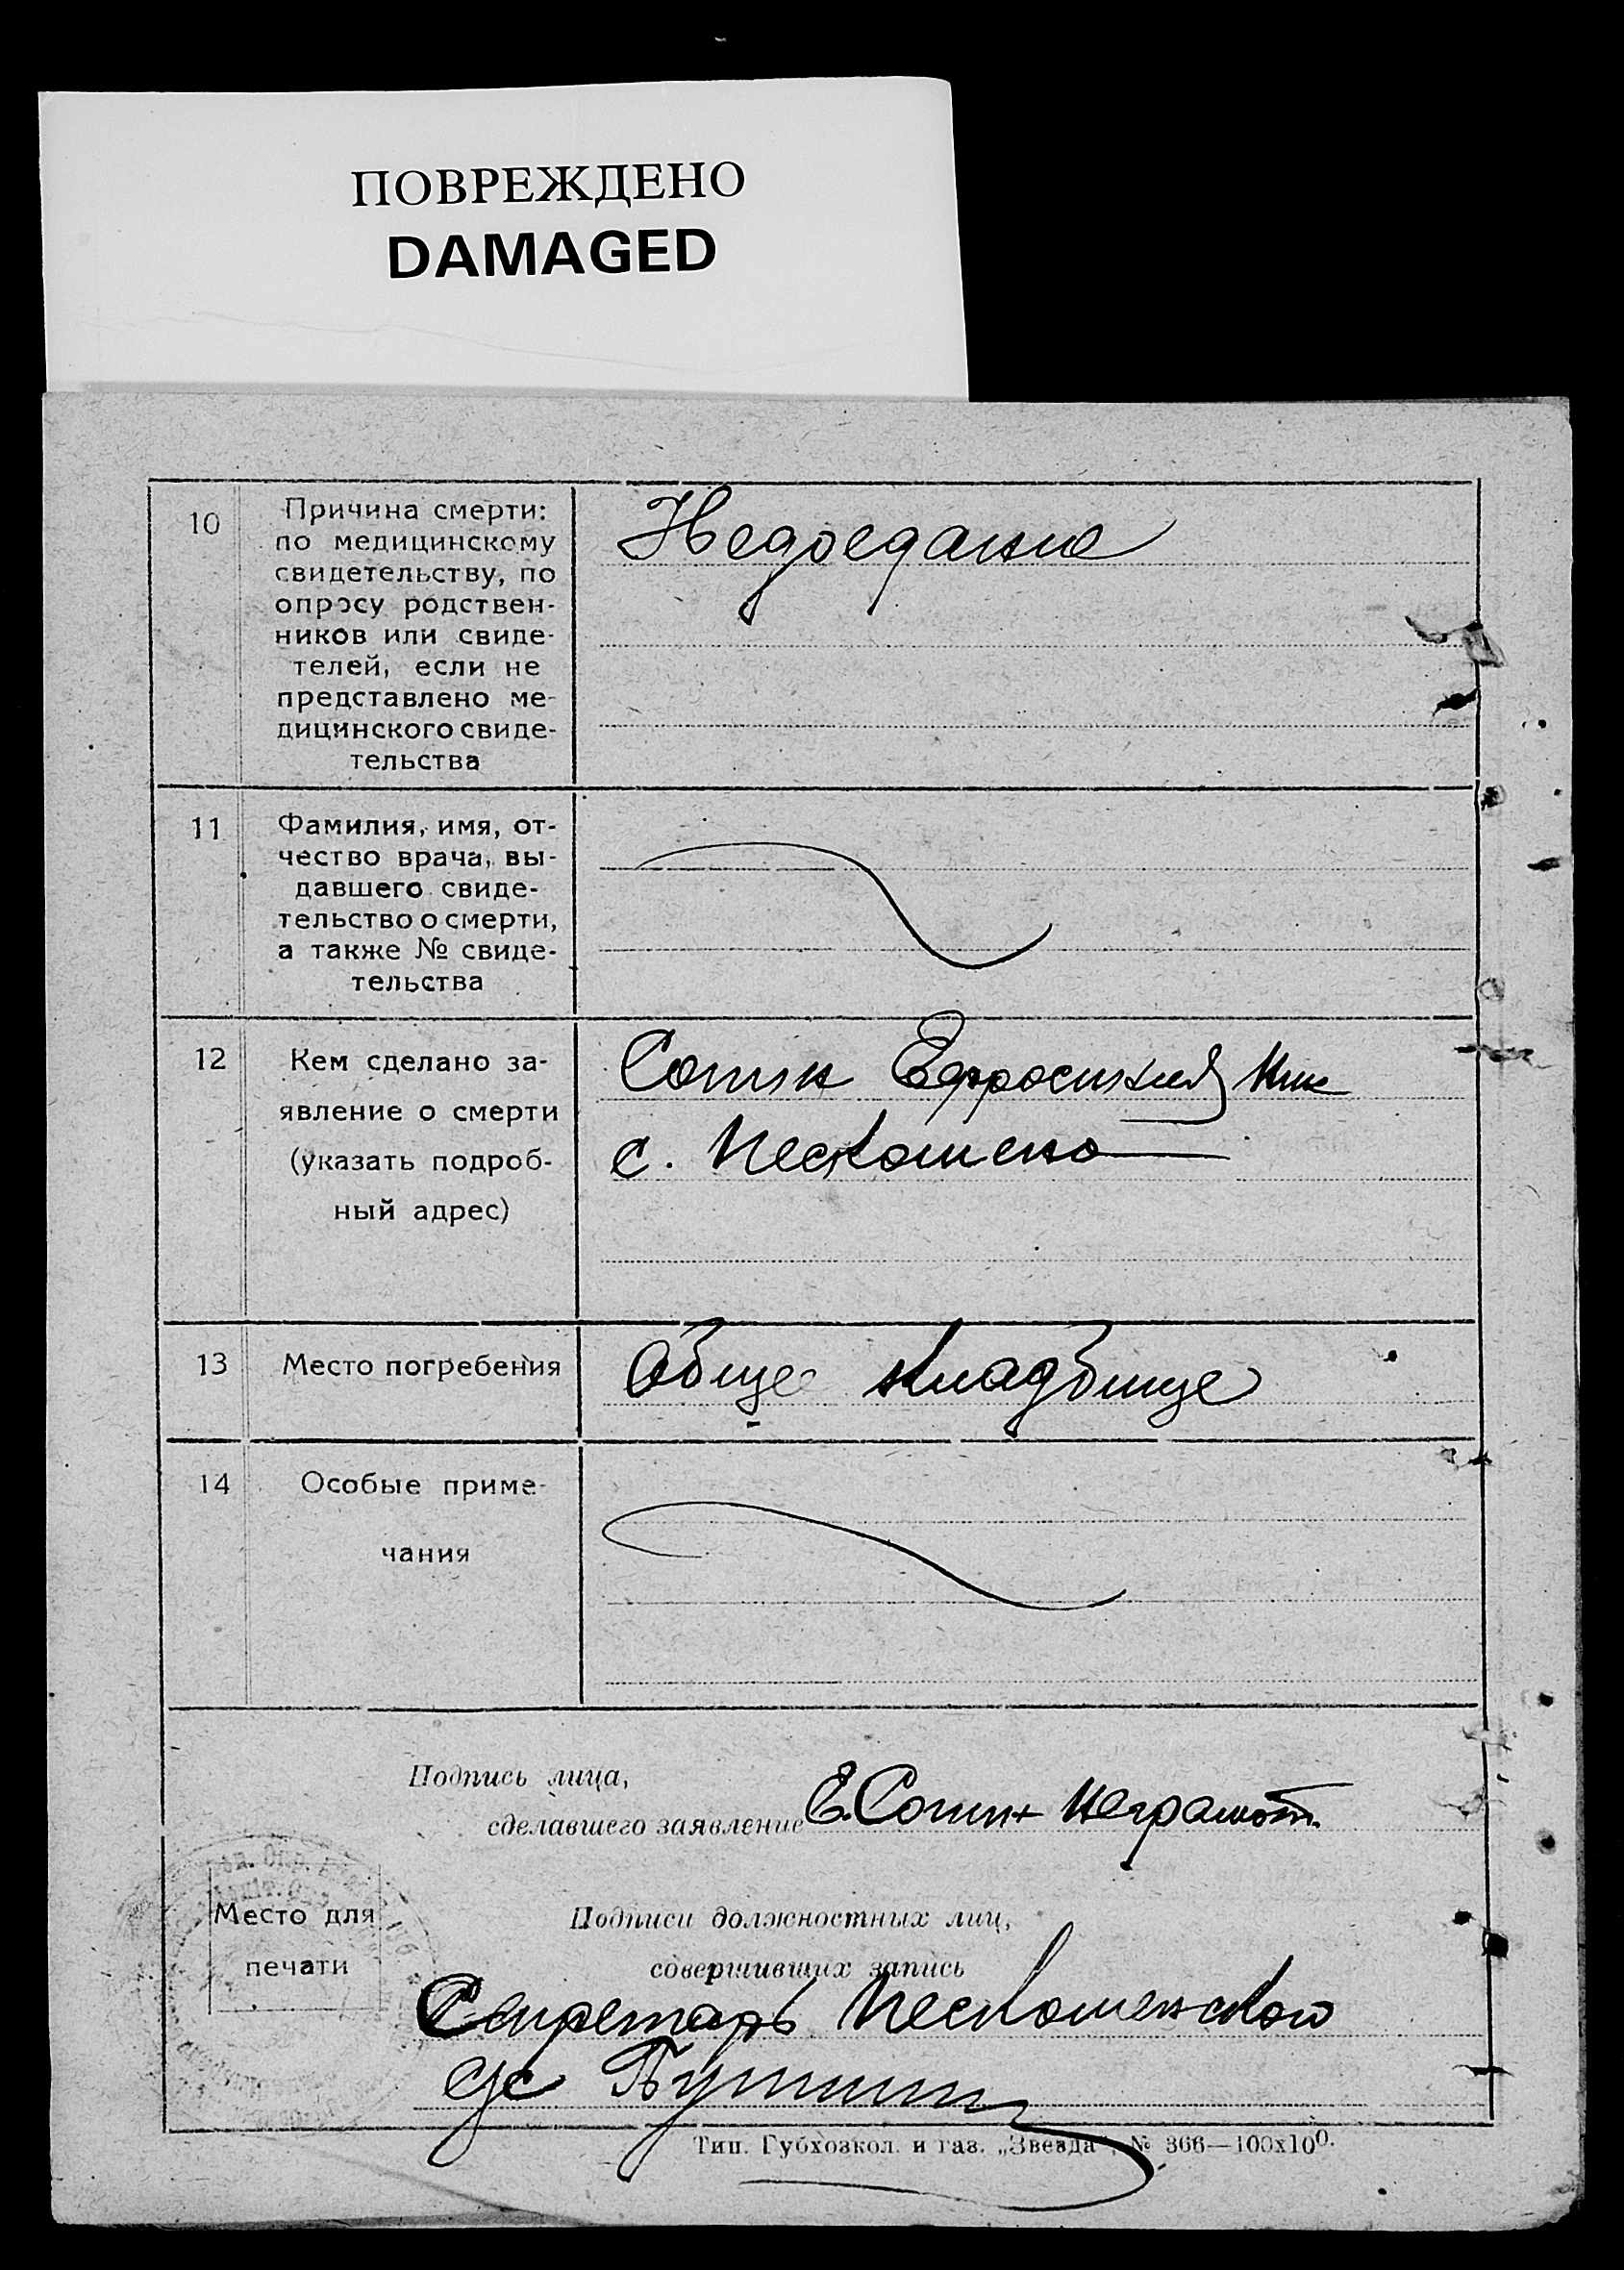 ПОВРЕЖДЕНО
DAMAGED
10
Причина смерти:
по медицинскому
свидетельству, по
опросу родствен-
ников или свиде-
телей, если не
представлено ме-
дицинского свиде-
тельства
Недоедание
11
Фамилия, имя, от-
чество врача, вы-
давшего свиде-
тельство о смерти,
а также № свиде-
тельства
12
Кем сделано за-
явление о смерти
(указать подроб-
ный адрес)
Сопин Ефросиния Ник
с. Пескошено
13
Место погребения
Обще кладбище
14
Особые приме-
чания
Подпись лица,
сделавшего заявление
Е. Сопин неграмот.
Место для
печати
Подписи должностных лиц,
совершивших запись
Секретарь Пескошенского
с/с
Тип. Губхозкол. и газ. „Звезда", № 366—100х100.